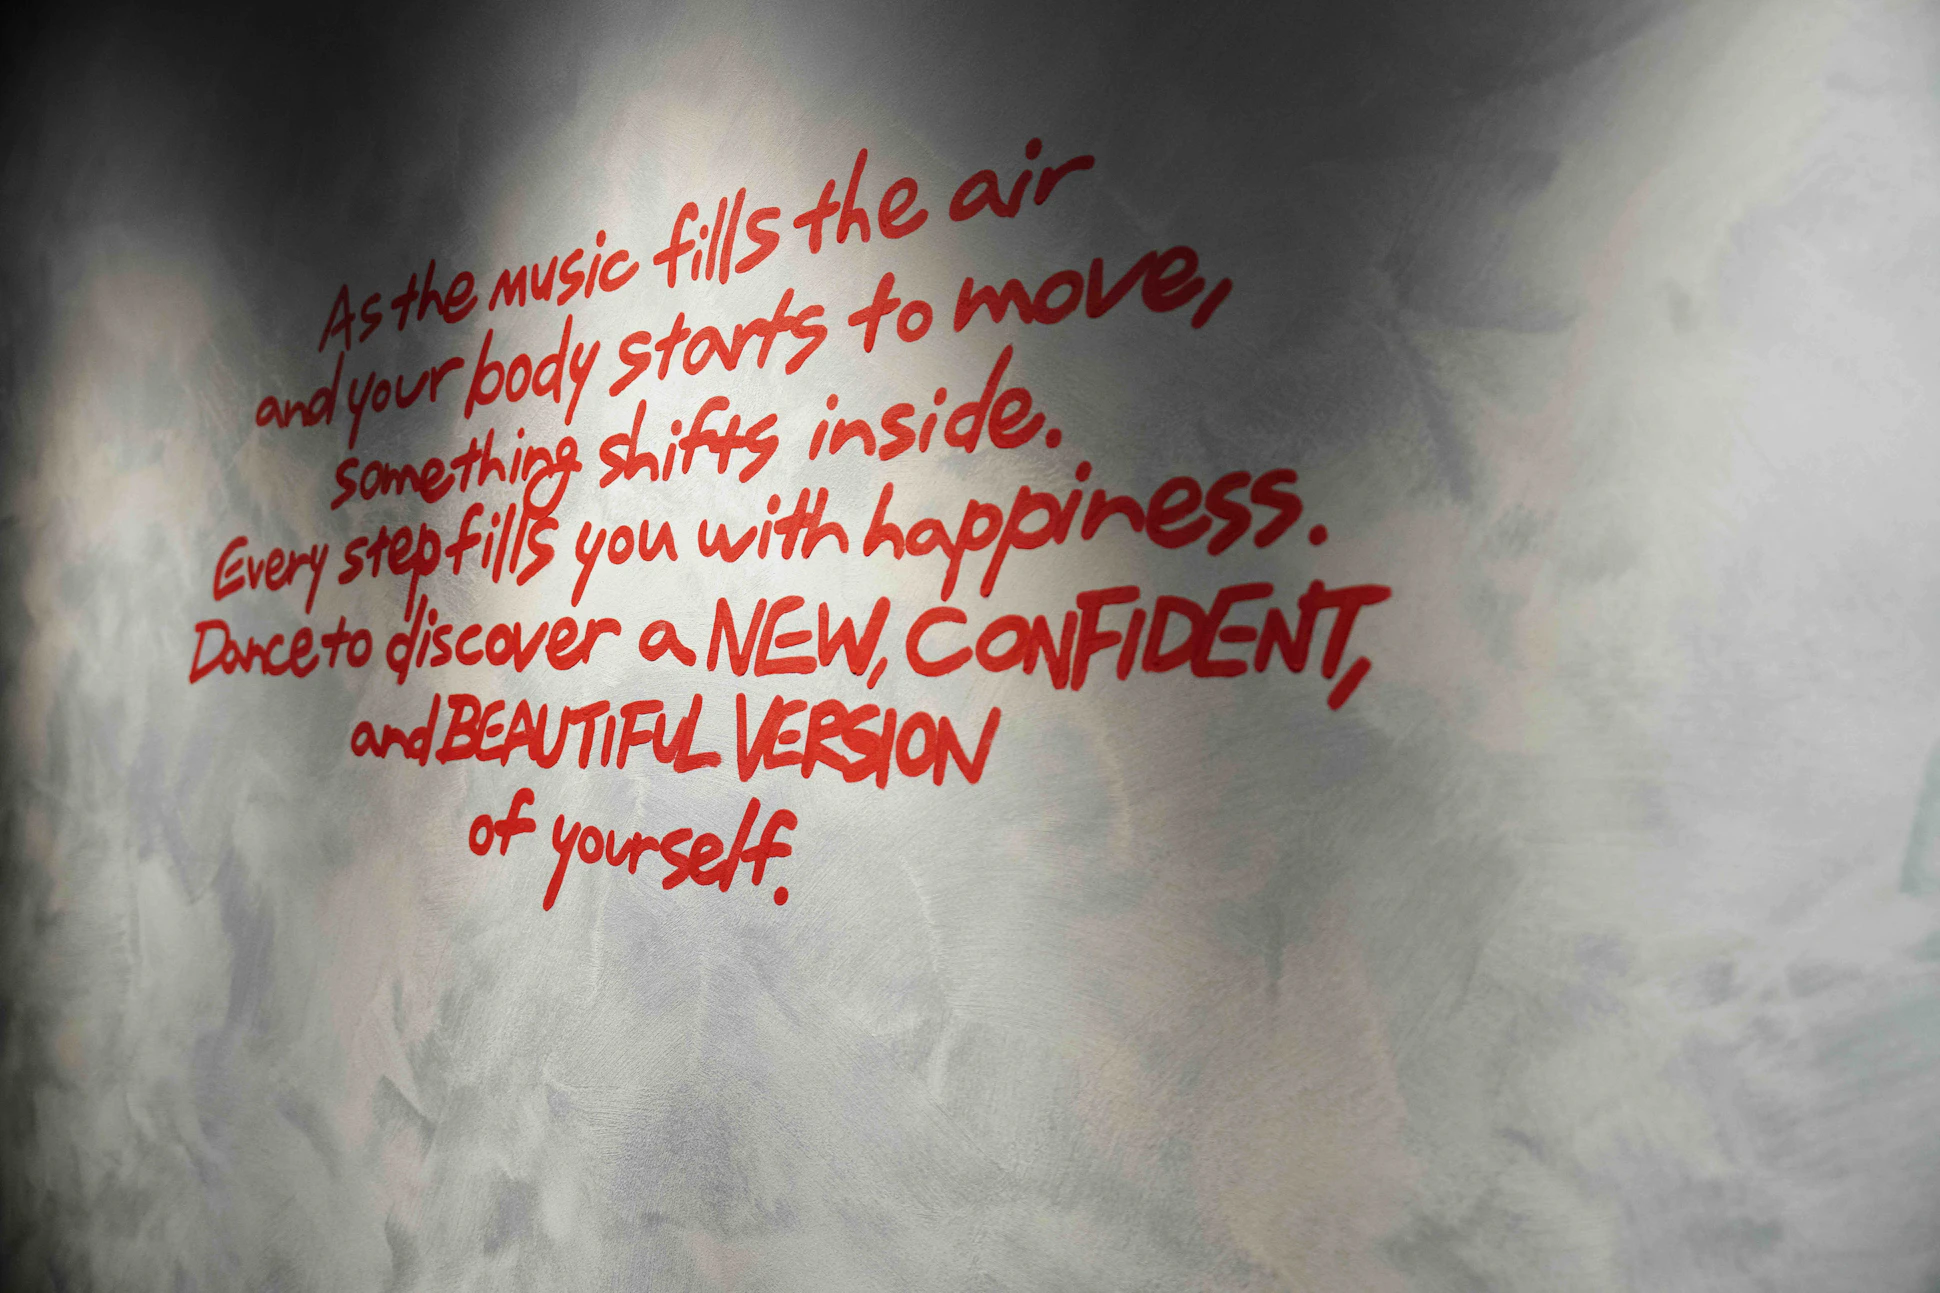 As the music fills the air
and your body starts to move,
something shifts inside.
Every step fills you with happiness.
Dance to discover a NEW, CONFIDENT,
and BEAUTIFUL VERSION
of yourself.